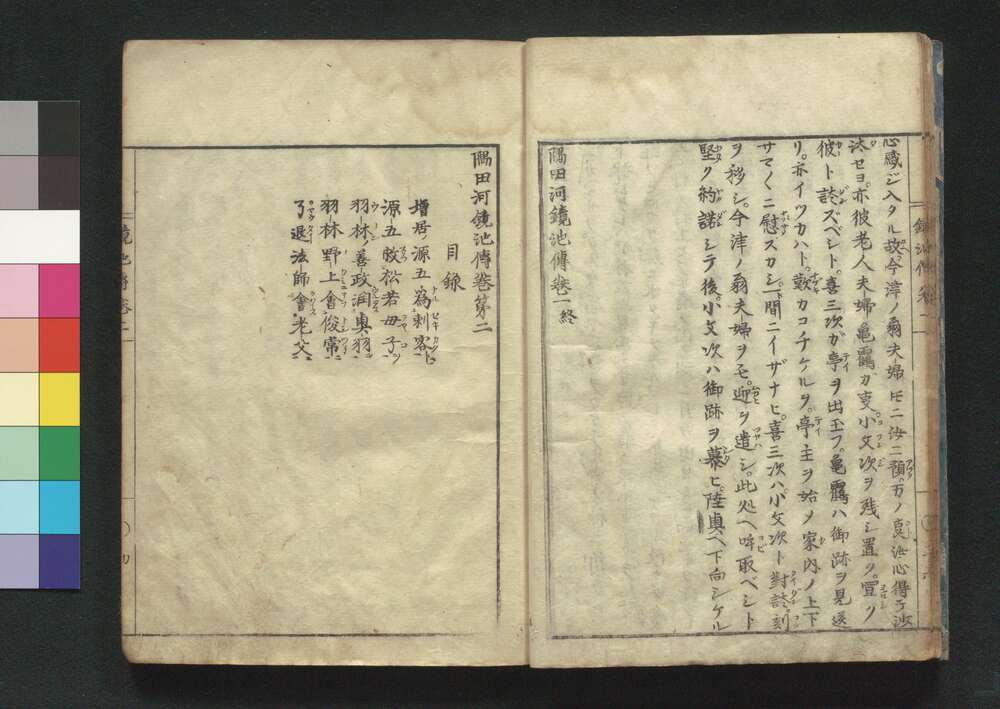 心感ジ入タル故今津ノ翁夫婦𪜈ニ汝ニ預。万ノ夏汝心得テ沙
汰セヨ。亦彼老人夫婦亀靍ガ叓。小文次ヲ残シ置ク。宜ク
彼ト談ズベシト。喜三次ガ亭ヲ出玉フ。亀靍ハ御跡ヲ見送
リ。亦イツカハト。歎カコチケルヲ。亭主ヲ始メ家内ノ上下
サマ〱ニ慰スカシ。一間ニイザナヒ。喜三次ハ。小文次ト對談。刻
ヲ移シ。今津ノ翁夫婦ヲモ。迎ヲ遣シ。此処ヘ呼取ベシト
堅ク約諾シテ後。小文次ハ御跡ヲ慕ヒ。陸奥ヘ下向シケル
隅田河鏡池傳卷一終
隅田河鏡池傳卷第二
目録
増居源五為刺客
源五救松若母子
羽林善政潤奥羽
羽林野上會俊常
了退法師會老父